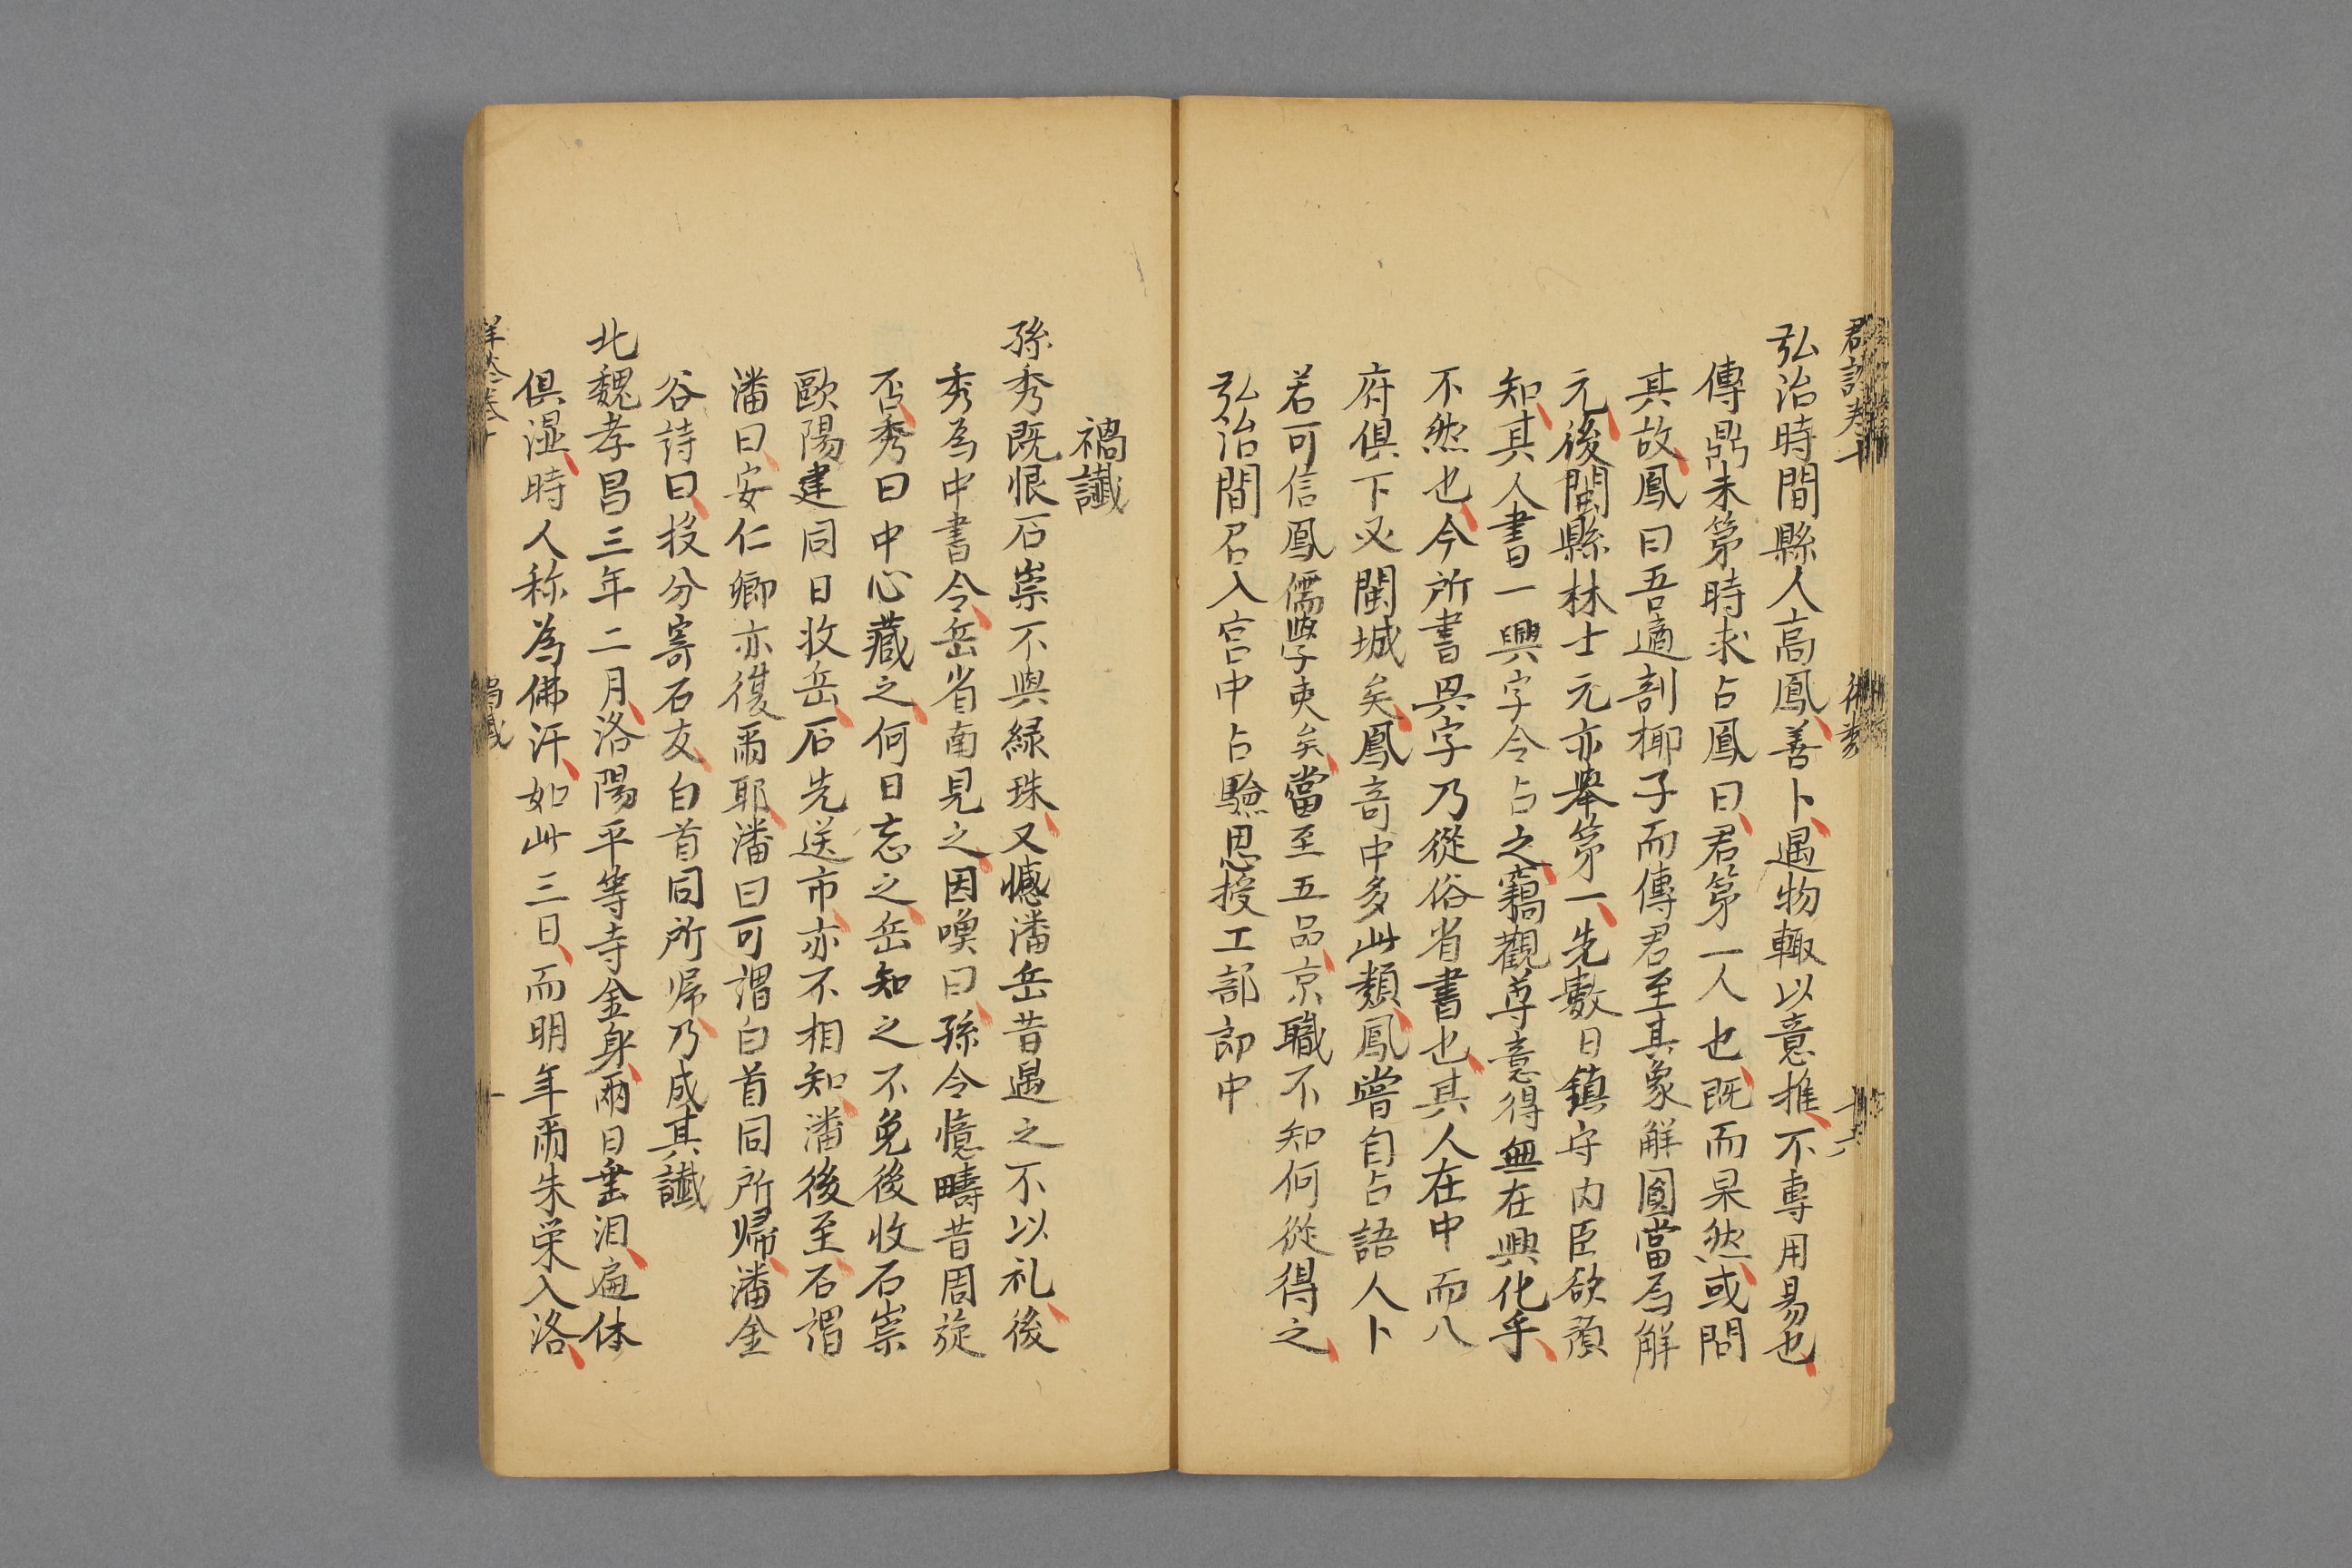 弘治時間縣人高鳳善卜遇物輙以意推不專用易也
傳鼎未第時求占鳳曰君第一人也既而果然或問
其故鳳曰吾適剖椰子而傳君至其象解圓當為解
元後閩縣林士元亦舉第一先數日鎮守内臣欲預
知其人書一興字令占之竊觀尊意得無在興化乎
不然也今所書兴字乃從俗省書也其人在中而八
府俱下必閩城矣鳳竒中多此類鳳嘗自占語人卜
若可信鳳儒學吏矣當至五品京職不知何從得之
弘治間召入宫中占驗恩授工部郎中
禍讖
孫秀既恨石崇不與緑珠又憾潘岳昔遇之不以礼後
秀為中書令岳省南見之因喚曰孫令憶疇昔周旋
否秀曰中心藏之何日忘之岳知之不免後收石崇
歐陽建同日收岳石先送市亦不相知潘後至石謂
潘曰安仁卿亦復爾耶潘曰可謂白首同所帰潘金
谷詩曰投分寄石友白首同所帰乃成其讖
北魏孝昌三年二月洛陽平等寺金身兩日垂泪遍体
俱湿時人称為佛汗如此三日而明年爾朱栄入洛